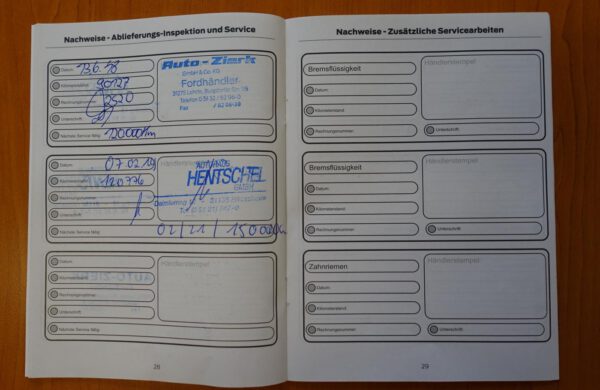 Nachweise - Ablieferungs-Inspektion und Service
Datum: 13.6.18
Kilometerstand: 90127
Rechnungsnummer:
Unterschrift:
Nächste Service fällig: 120000km
Auto-Ziark
GmbH & Co. KG
Fordhändler
31275 Lehrte,
Telefon
Fax
Datum: 07 02 19
Kilometerstand: 120776
Rechnungsnummer:
Unterschrift:
Nächste Service fällig: 02/21/150000km
Händlerstempel
AUTOHAUS
HENTSCHEL
GMBH
Datum:
Kilometerstand:
Rechnungsnummer:
Unterschrift:
Nächste Service fällig:
Händlerstempel
28
Nachweise - Zusätzliche Servicearbeiten
Bremsflüssigkeit
Datum:
Kilometerstand:
Rechnungsnummer:
Händlerstempel
Unterschrift:
Bremsflüssigkeit
Datum:
Kilometerstand:
Rechnungsnummer:
Händlerstempel
Unterschrift:
Zahnriemen
Datum:
Kilometerstand:
Rechnungsnummer:
Händlerstempel
Unterschrift:
29